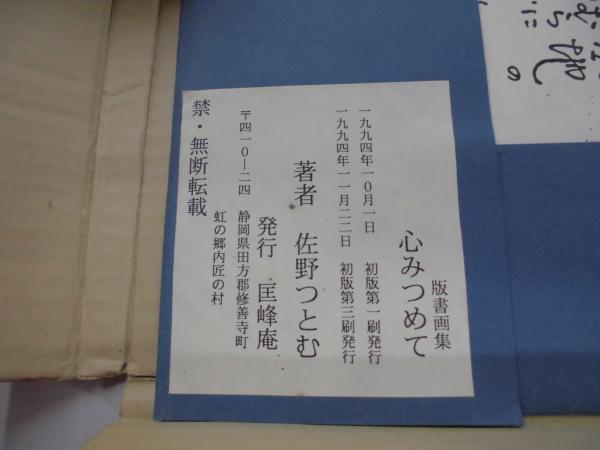 版書画集
心みつめて
一九九四年一〇月一日　初版第一刷発行
一九九四年一一月二二日　初版第三刷発行
著者　佐野つとむ
発行　匡峰庵
〒四一〇―二四　静岡県田方郡修善寺町
虹の郷内匠の村
禁・無断転載